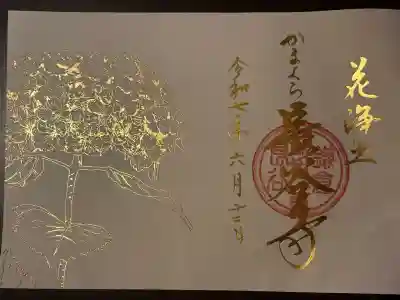 花浄土
かまくら
長谷寺
令和七年六月十二日